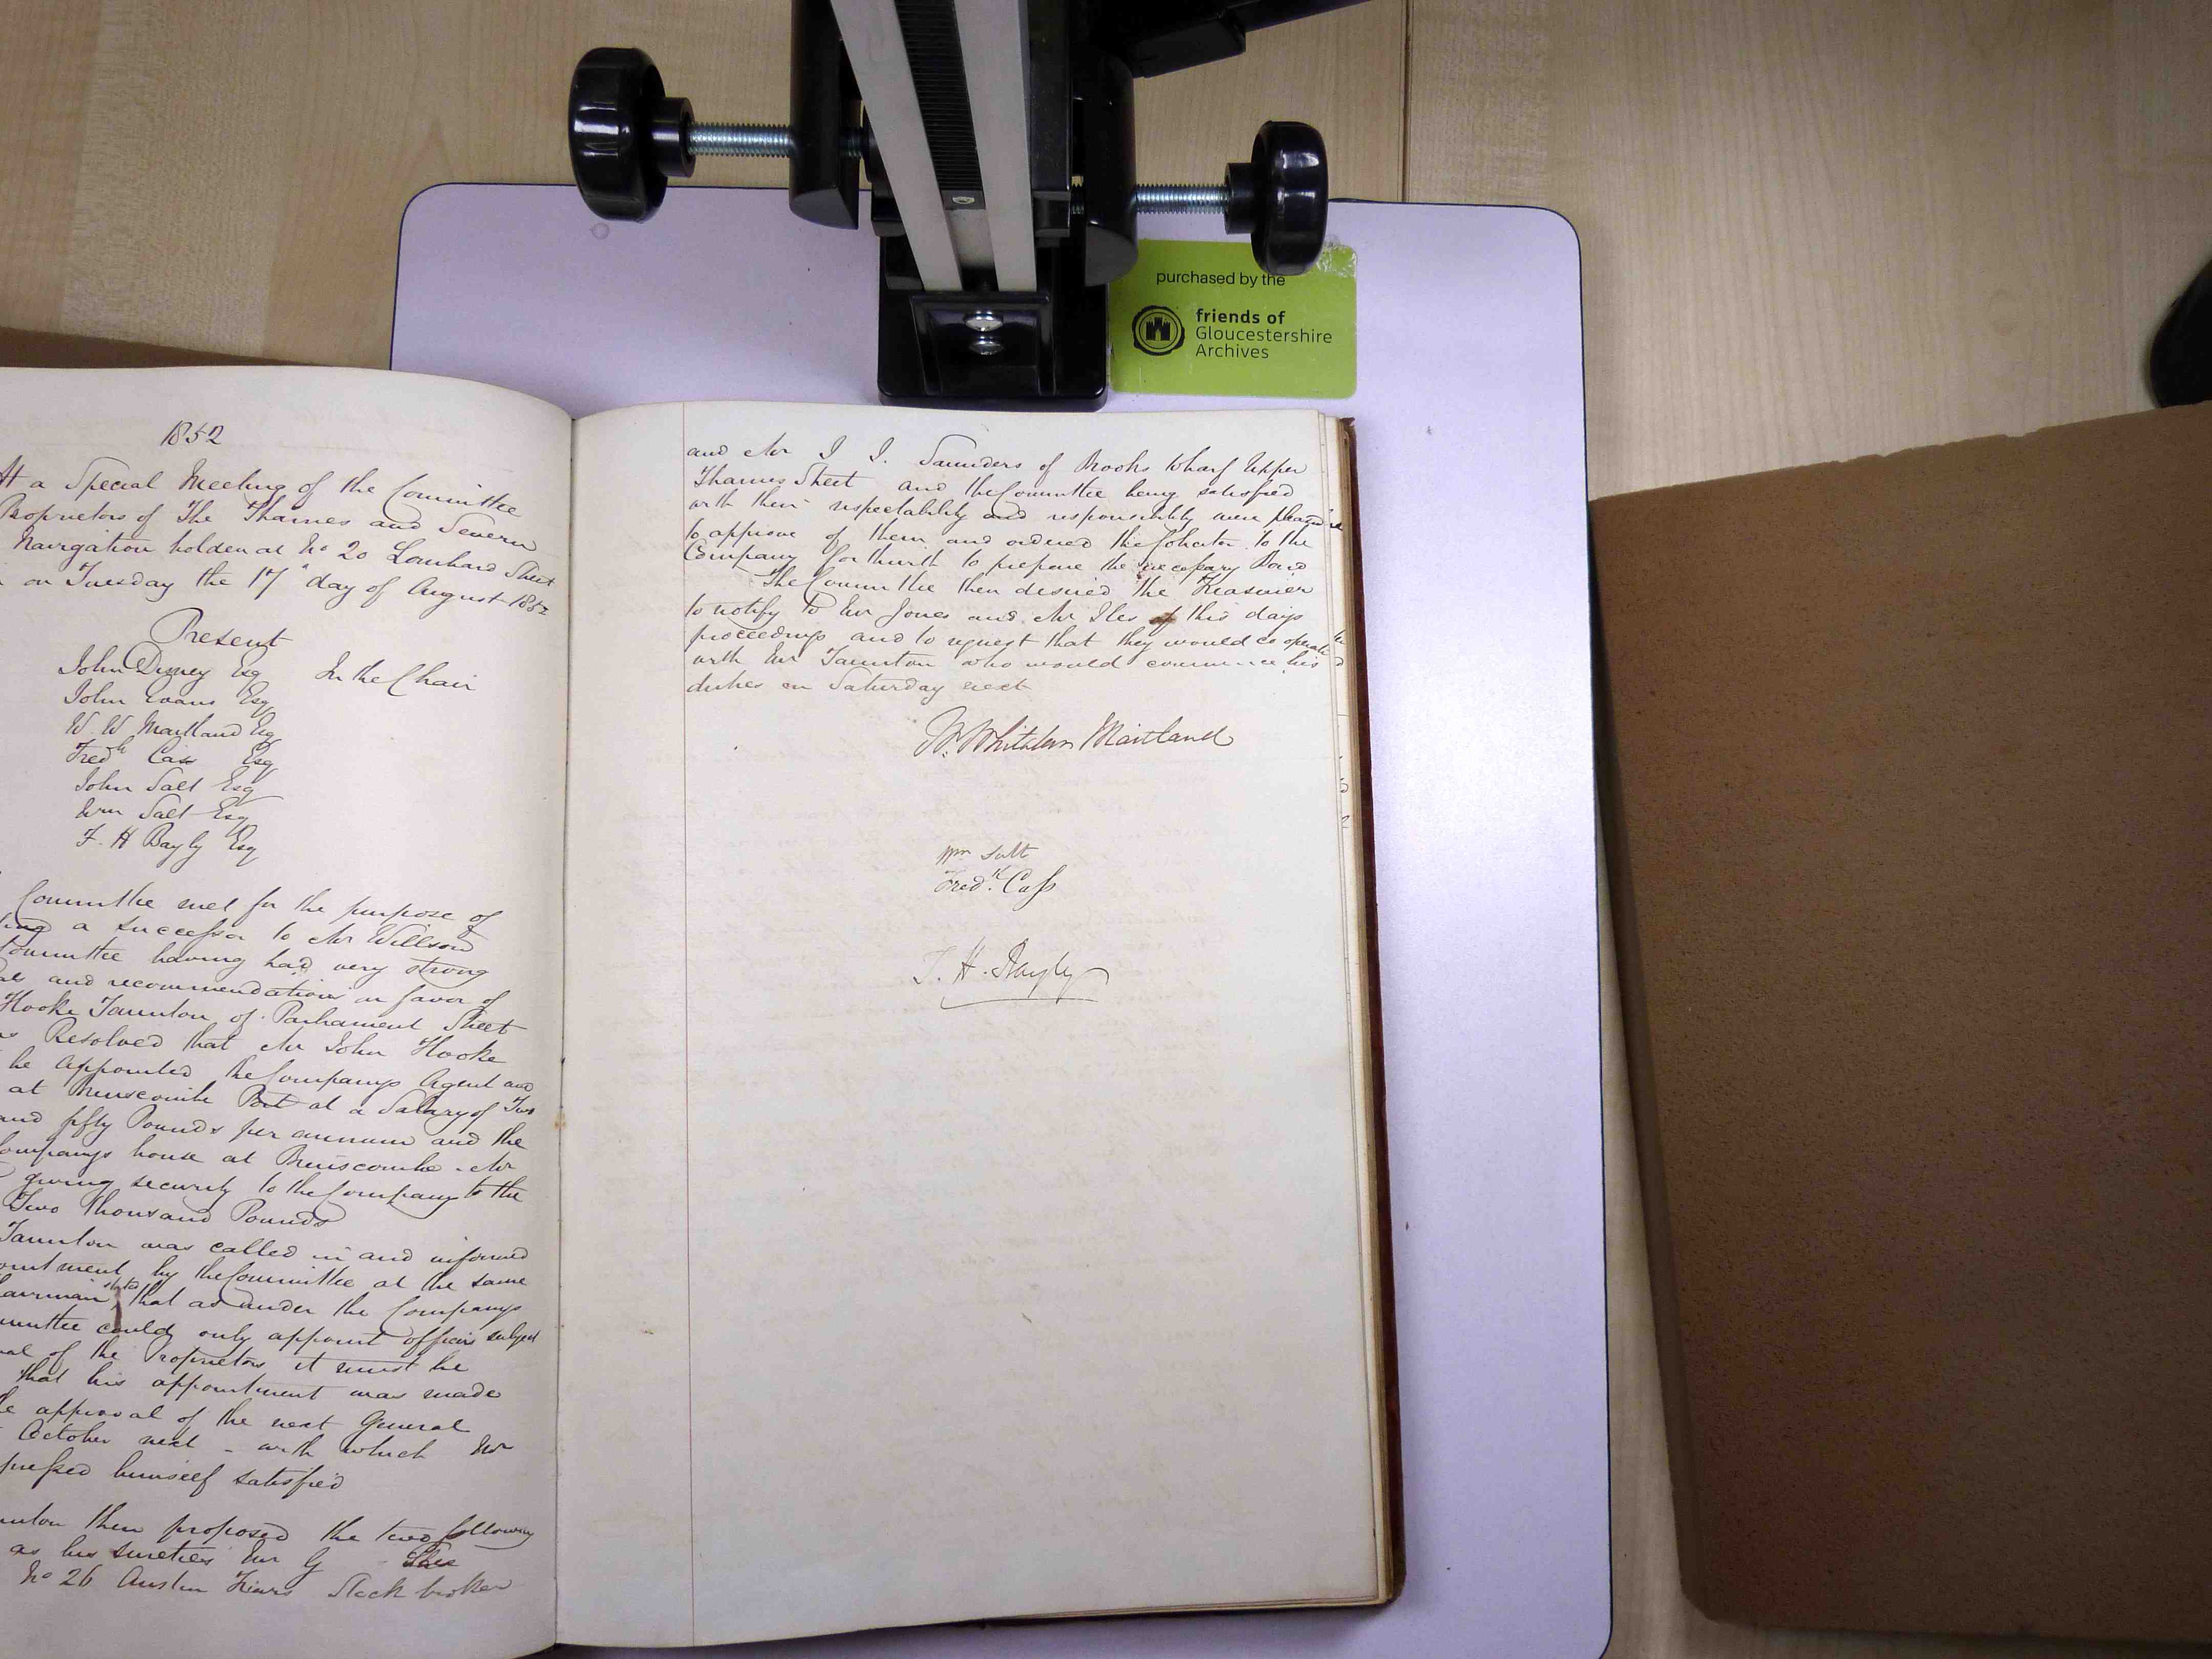 purchased by the
friends of
Gloucestershire
Archives
1852
At a Special Meeting of the Committee
Proprietors of The Thames and Severn
Navigation holden at No 20 Lombard Street
on Tuesday the 17th day of August 1852
Present
John Disney Esq In the Chair
John Evans Esq
W. W Maitland Esq
Fredk Cass Esq
John Salt Esq
Wm Salt Esq
F. H Bayly Esq
Committee met for the purpose of
a successor to Mr Willson
Committee having had very strong
and recommendations in favor of
Hooke Taunton of Parliament Street
Resolved that Mr John Hooke
be appointed the Companys Agent and
at Brimscombe Port at a Salary of Two
and fifty Pounds per annum and the
Companys house at Brimscombe - Mr
giving security to the Company to the
Two Thousand Pounds
Taunton was called in and informed
by the Committee at the same
stated that as under the Companys
could only appoint officers subject
of the Proprietors it must be
that his appointment was made
approval of the next General
October next - with which Mr
himself satisfied
then proposed the two following
as his sureties Mr G
No 26 Austin Friars Stock broker
and Mr J J. Saunders of Brooks Wharf Upper
Thames Street and the Committee being satisfied
with their respectability and responsibility were pleased
to approve of them and ordered the Solicitor to the
Company forthwith to prepare the necessary Bond
The Committee then desired the Treasurer
to notify to Mr Jones and Mr Iles of this days
proceedings and to request that they would co operate
with Mr Taunton who would commence his
duties on Saturday next
W. Whitaker Maitland
Wm Salt
Fredk. Cass
F. H. Bayly